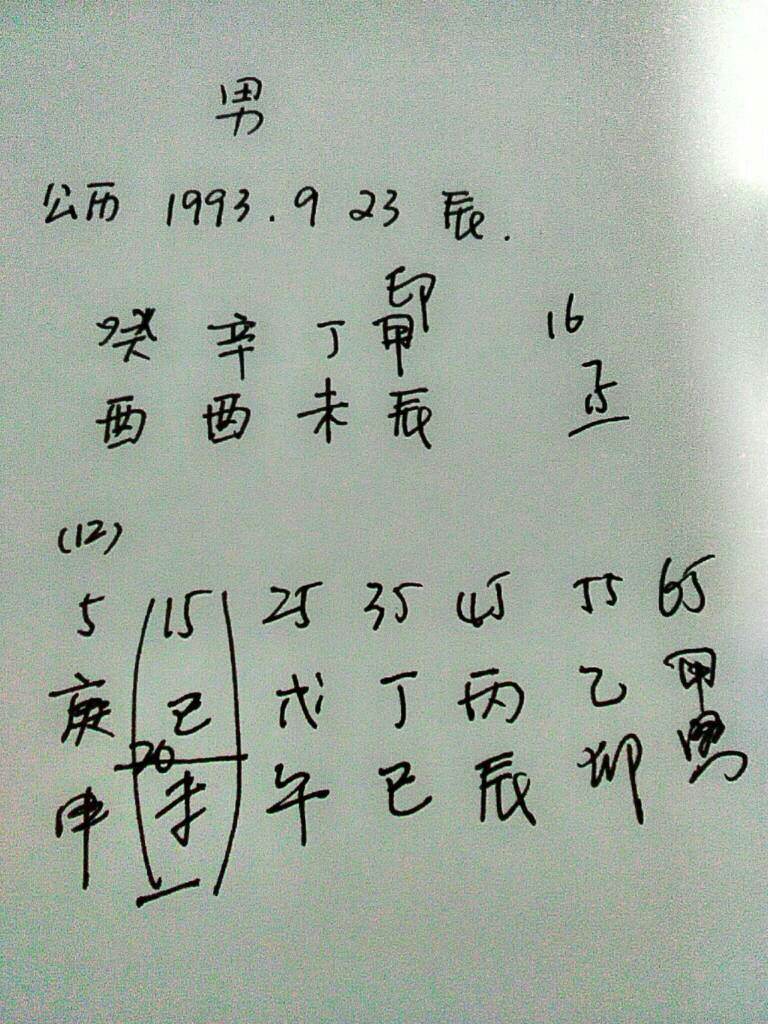 男
公历 1993.9 23 辰.
印
癸 辛 丁 甲 16
酉 酉 未 辰 正
(12)
5 15 25 35 45 55 65
庚 己 戊 丁 丙 乙 甲
20
申 未 午 巳 辰 卯